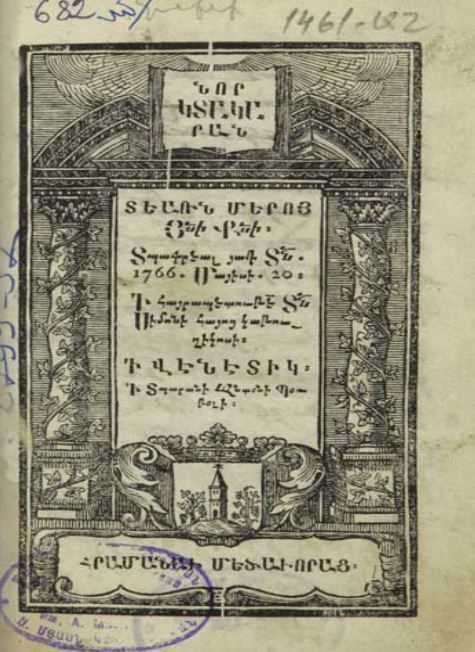 682
1461-482
ՆՈՐ
ԿՏԱԿԱ
ՐԱՆ
ՏԵԱՌՆ ՄԵՐՈՅ
ՅՆԻ ՔՆԻ։
Տպագրեալ յամի ՏՆ
1766. Մայիսի. 20։
Ի հայրապետութեան ՏՆ
Սիմոնի հայոց կաթու
ղիկոսի։
Ի ՎԵՆԵՏԻԿ։
Ի Տպարանի Անտօնի Պօռ
թօլի։
ՀՐԱՄԱՆԱՒ ՄԵԾԱՒՈՐԱՑ։